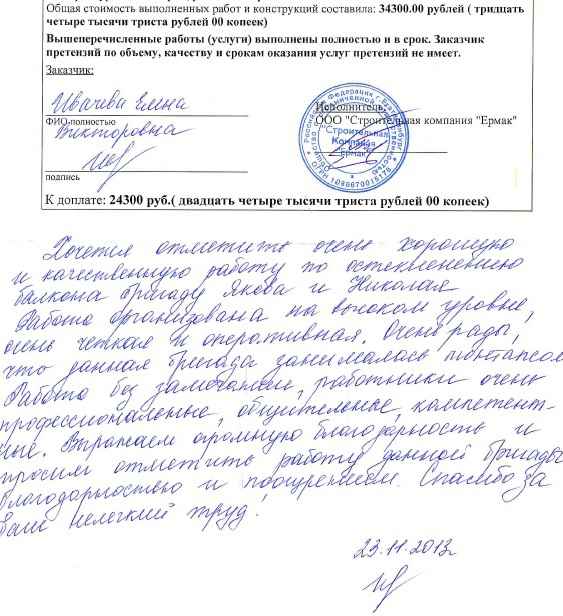 Общая стоимость выполненных работ и конструкций составила: 34300.00 рублей ( тридцать
четыре тысячи триста рублей 00 копеек)
Вышеперечисленные работы (услуги) выполнены полностью и в срок. Заказчик
претензий по объему, качеству и срокам оказания услуг претензий не имеет.
Заказчик:
Ивачева Елена
ФИО полностью
Викторовна
подпись
Исполнитель:
ООО "Строительная компания "Ермак"
"Строительная
Компания
"Ермак"
К доплате: 24300 руб.( двадцать четыре тысячи триста рублей 00 копеек)
Хочется отметить очень хорошую
и качественную работу по остеклению
балкона бригаду Якова и Николая
Работа организована на высоком уровне,
очень четкая и оперативная. Очень рады,
что данная бригада занималась монтажом
Работа без замечаний, работники очень
профессиональные, общительные, компетент-
ные. Выражаем огромную благодарность и
просим отметить работу данной бригады
благодарностью и поощрением. Спасибо за
Ваш нелегкий труд!
23.11.2013г